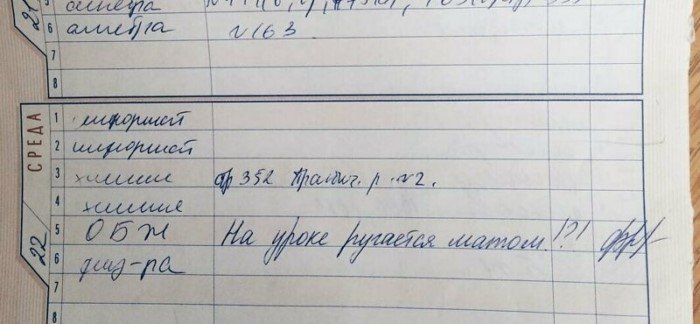 5 алгебра
6 алгебра №163
7
8
21
СРЕДА
1 информат
2 информат
3 химия стр 352 Практич. р. №2.
4 химия
5 ОБЖ На уроке ругается матом!?!
6 физ-ра
7
8
22